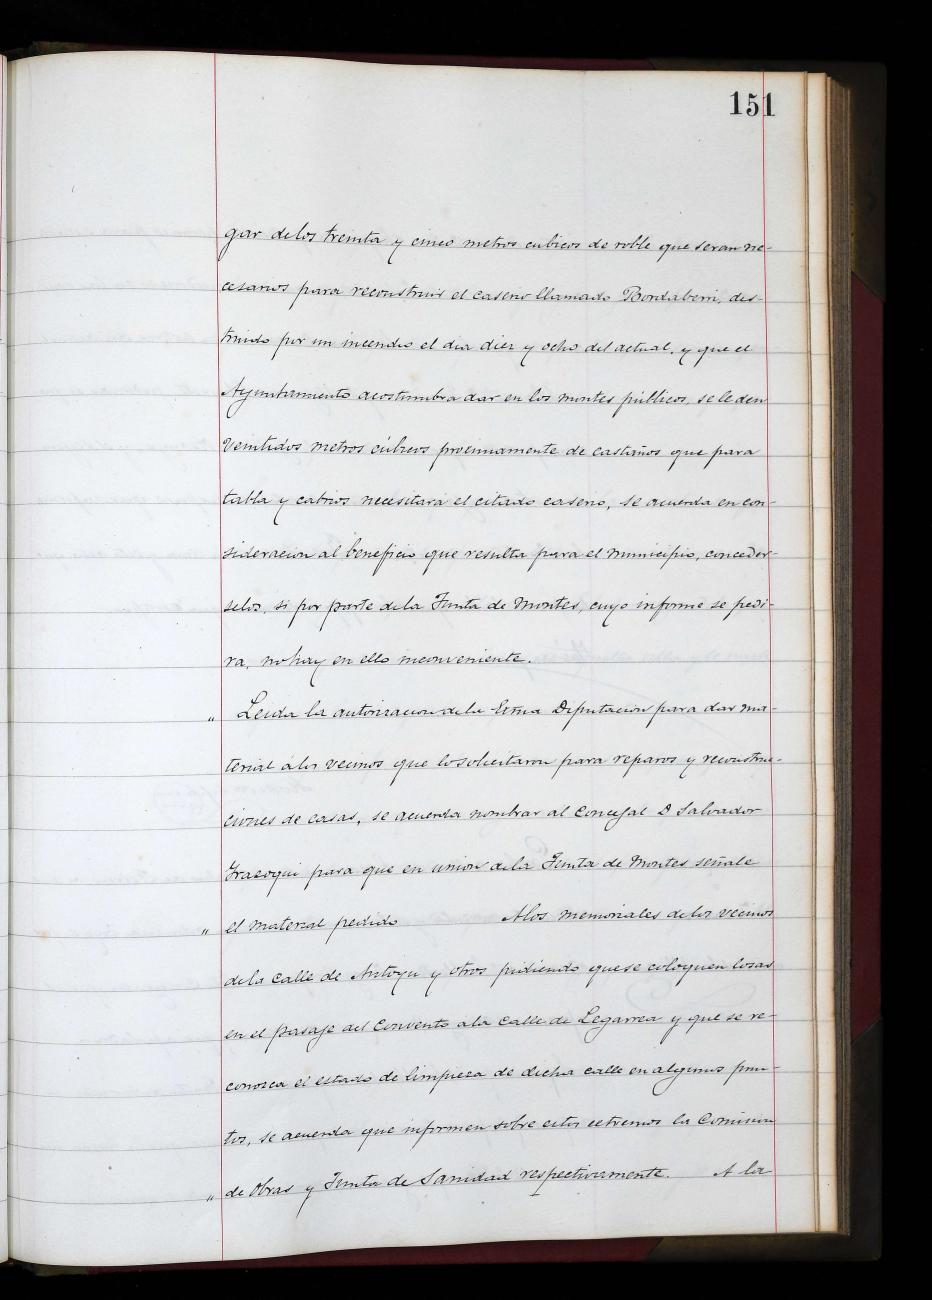 151
gar de los treinta y cinco metros cubicos de roble que seran ne-
cesarios para reconstruir el caserio llamado Bordaberri, des-
truido por un incendio el dia diez y ocho del actual, y que el
Ayuntamiento acostumbra dar en los montes públicos, se le den
veintidos metros cúbicos proximamente de castaños que para
tabla y cabrios necesitará el citado caserio, se acuerda en con-
sideracion al beneficio que resulta para el municipio, conceder-
selos, si por parte de la Junta de Montes, cuyo informe se pedi-
ra, no hay en ello inconveniente.
" Leida la autorizacion de la Exma Diputacion para dar ma-
terial á los vecinos que lo solicitaron para reparos y reconstruc-
ciones de casas, se acuerda nombrar al Concejal D Salvador
Irazoqui para que en union de la Junta de Montes señale
" el material pedido A los memoriales de los vecinos
de la calle de Antoyu y otros pidiendo que se coloquen losas
en el pasaje del Convento a la Calle de Legarrea y que se re-
conozca el estado de limpieza de dicha calle en algunos pun-
tos, se acuerda que informen sobre estos extremos la Comision
" de Obras y Junta de Sanidad respectivamente. A la